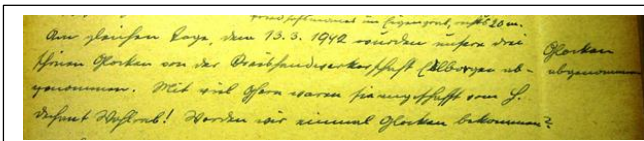 im Eigengrab, rechts 20 m.
Am gleichen Tage, dem 13.3.1942 wurden unsere drei
schönen Glocken von der Kreishandwerkerschaft ab-
genommen. Mit viel Opfern waren sie angeschafft vom H.
Dechant Wohlrab! Werden wir einmal Glocken bekommen?
Glocken
abgenommen